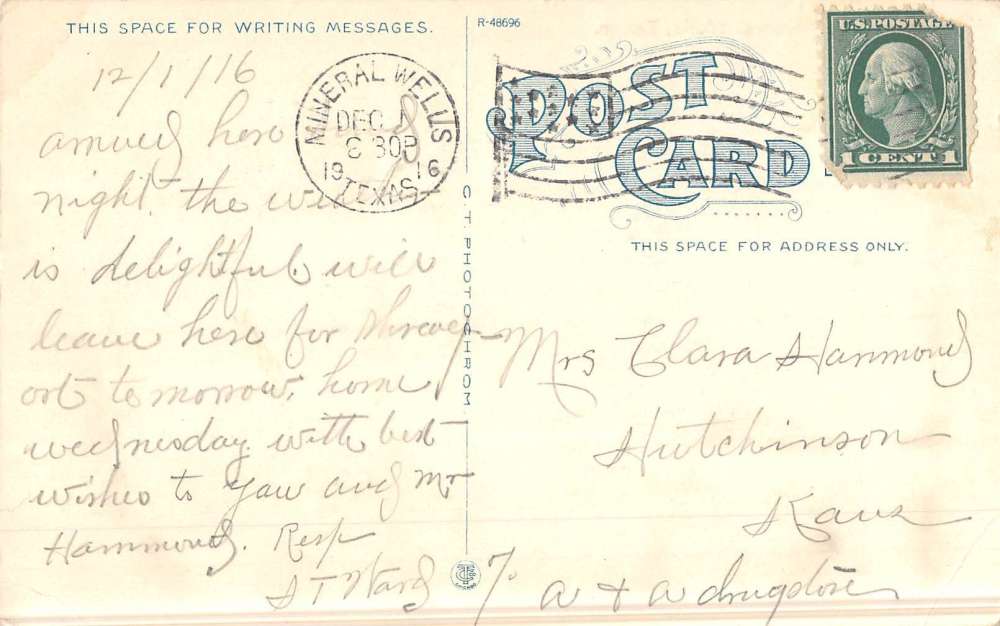 THIS SPACE FOR WRITING MESSAGES.
12/1/16
arrived here
night. the
is delightful. will
leave here for Shrevep
ort tomorrow. home
wednesday with best
wishes to yaw and Mr
Hammond. Resp
S T Ward
MINERAL WELLS
DEC 1
8 30P
1916
TEXAS
C. T. PHOTOCHROM
R-48696
POST CARD
U.S. POSTAGE
1 CENT 1
THIS SPACE FOR ADDRESS ONLY.
Mrs Clara Hammond
Hutchinson
Kans
% a + a drugstore